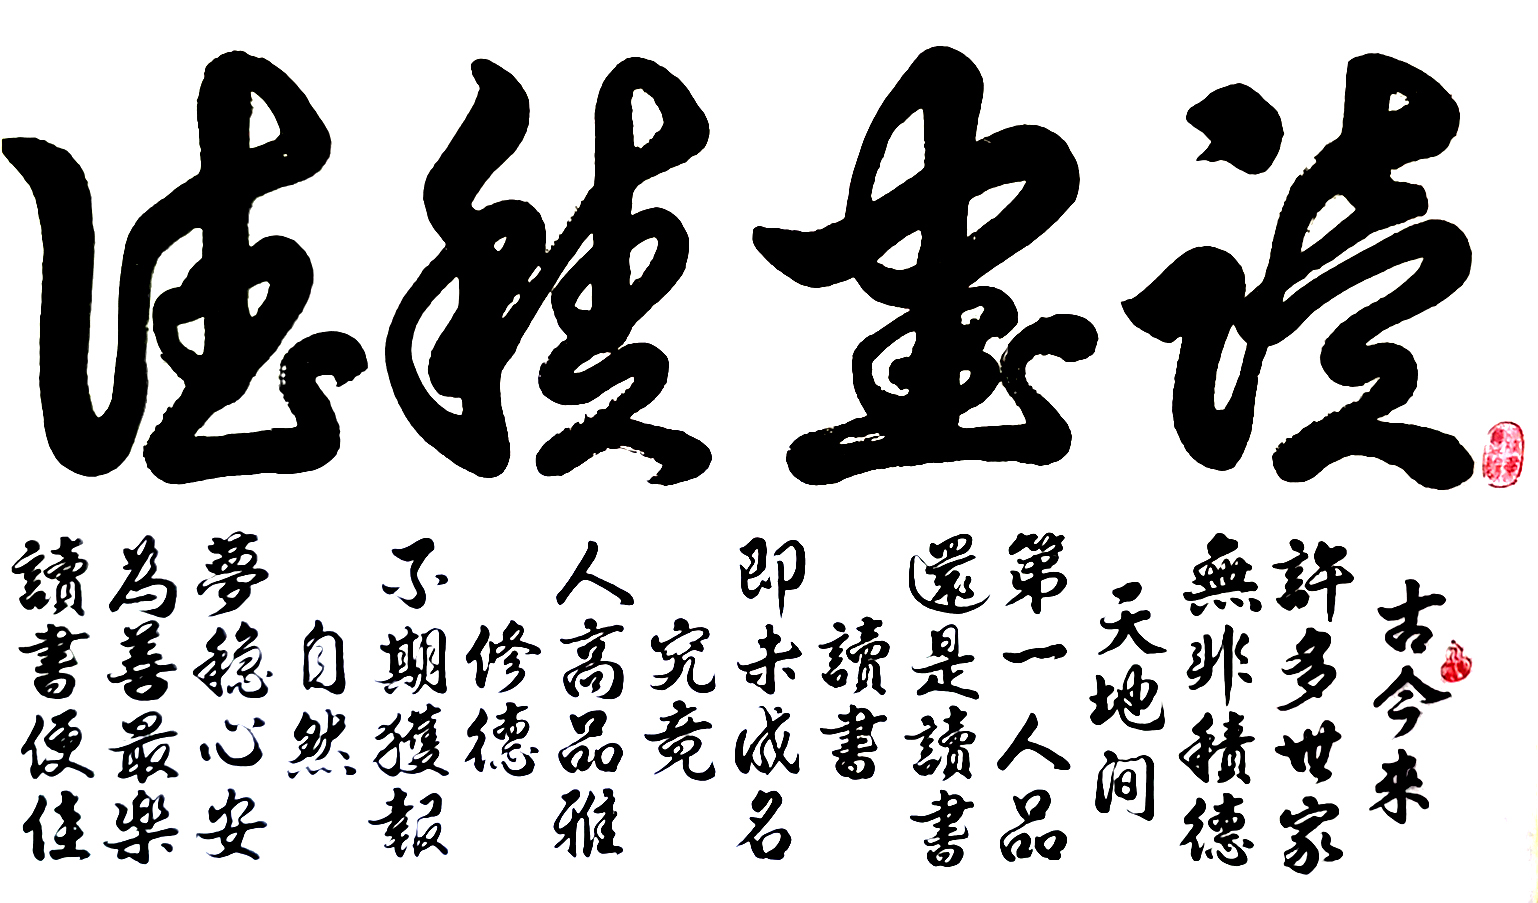 讀書積德
古今來
許多世家
無非積德
天地間
第一人品
還是讀書
讀書
即未成名
究竟
人高品雅
修德
不期獲報
自然
夢穩心安
為善最樂
讀書便佳